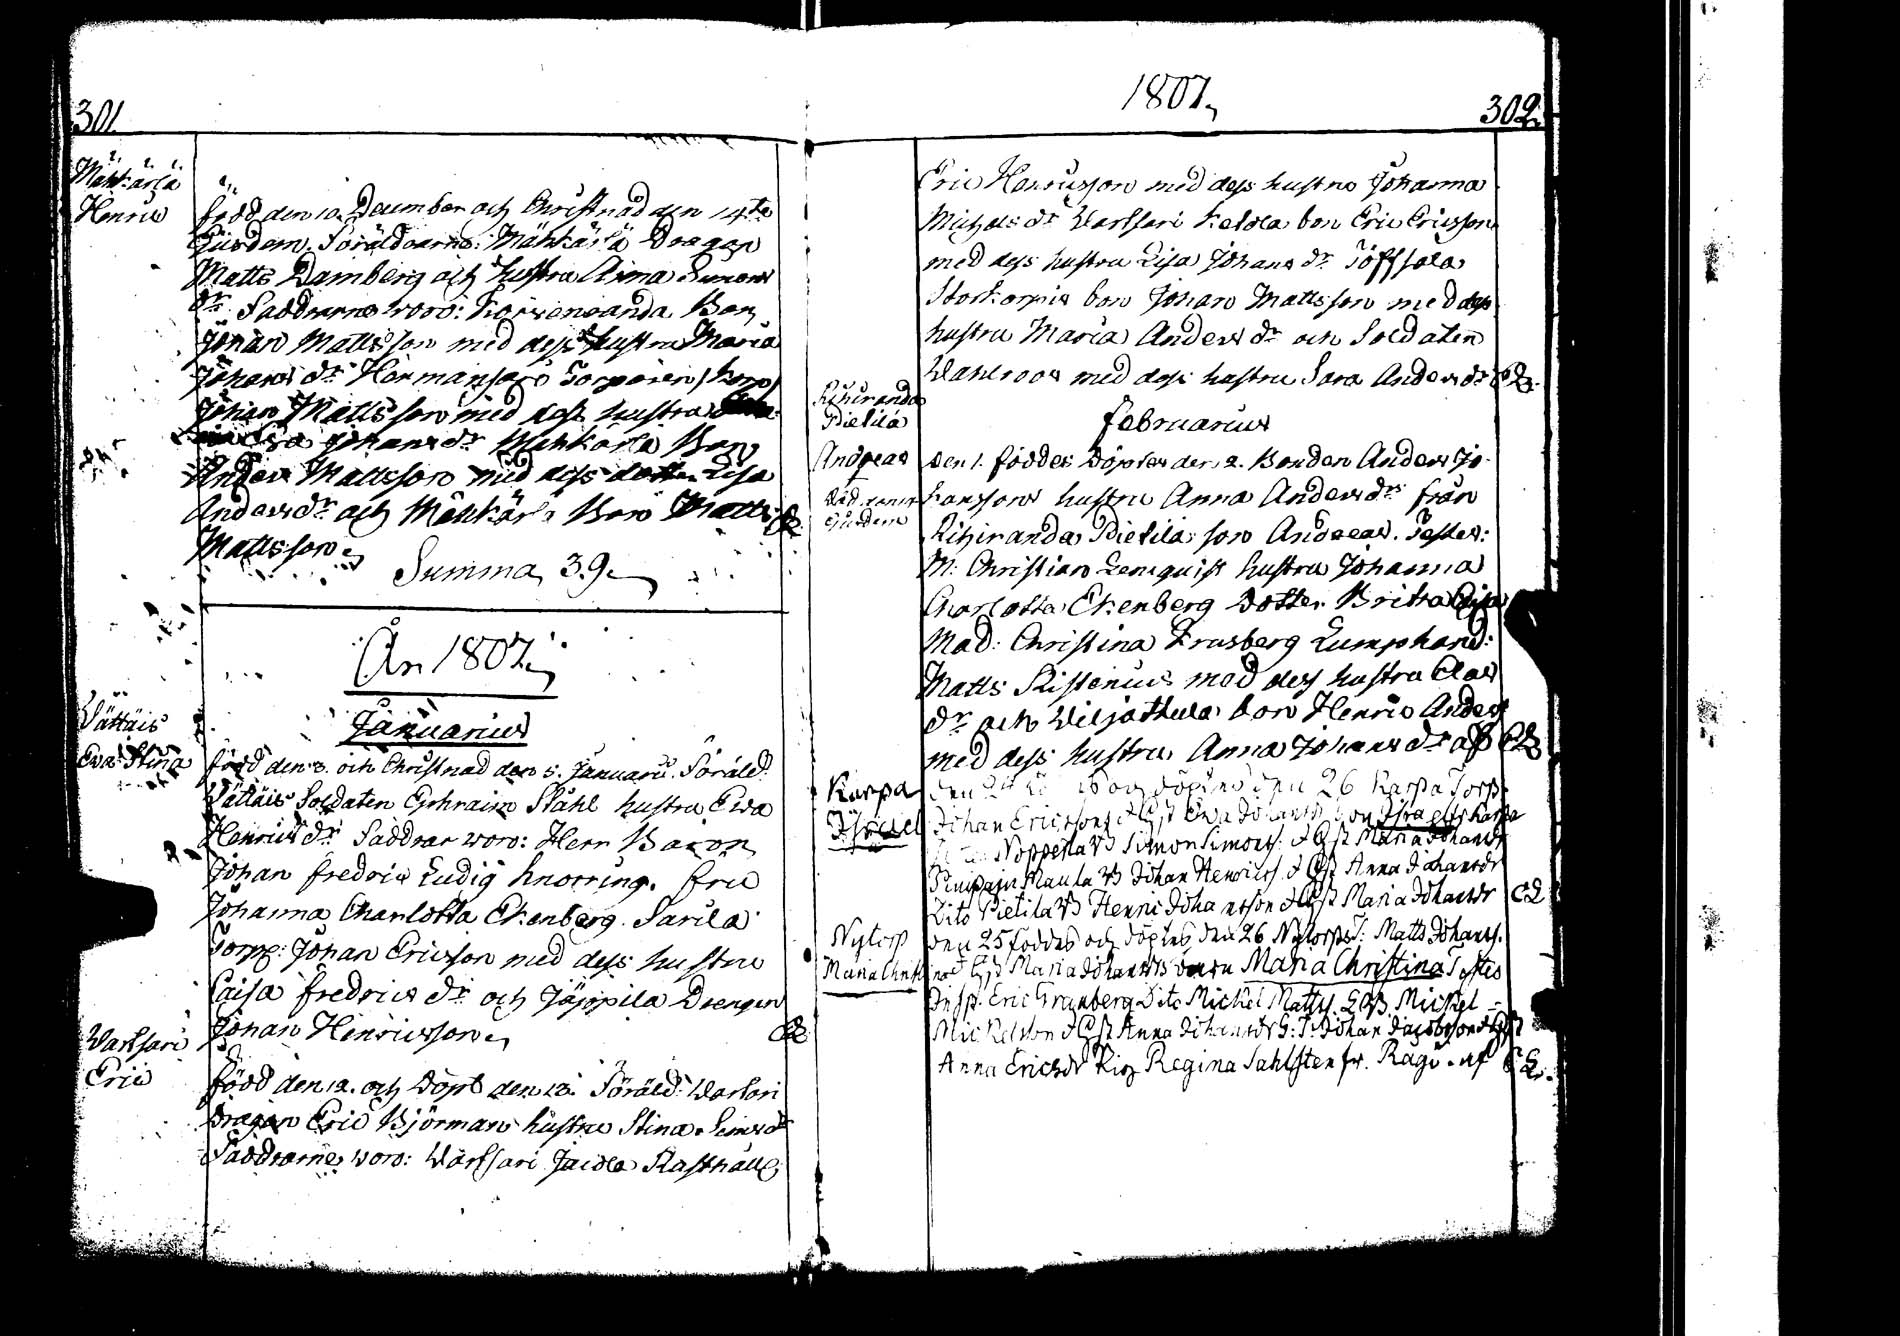 301
Mähkärlä
Henric
född den 10. December och Christnad den 14de
Ejusdem. Föräldrarne: Mähkärlä Dragon
Matts Damberg och hustru Anna Simons
dr Faddrarne woro: Korwensanda Bon
Johan Mattsson med dess hustru Maria
Johans dr Hermansaro Torparen
Johan Mattsson med dess hustru
Lisa Johans dr Mähkärlä Bon
Anders Mattsson med dess dotter Lisa
Anders dr och Mähkärlä Bon Matts
Mattsson
Summa 39.
År 1807.
Januarius
Wättäis
Eva Stina
född den 3. och Christnad den 5. Januarii. Föräld:
Wättäis Soldaten Ephraim Ståhl hustru Ewa
Henrics dr Faddrar woro: Herr Baron
Johan Fredric Ludig Knorring. fru
Johanna Charlotta Ekenberg. Sarila
Torp: Johan Ericsson med dess hustru
Caisa Fredrics dr och Jäppilä Drengen
Johan Henricsson
Warssari
Eric
född den 12. och döpt den 13. Föräld: Warssari
Dragon Eric Björman hustru Stina Simsdr
Faddrarne woro: Warssari Jaidla Rasthåll:
1807.
302.
Eric Henricsson med dess hustru Johanna
Michels dr Warssari Ketola bon Eric Ericsson
med dess hustru Lisa Johans dr Töfssala
Storkorpis bon Johan Mattsson med dess
hustru Maria Anders dr och Soldaten
Wahlroos med dess hustru Sara Anders dr
Februarius
Rihiranda
Pietilä
Andreas
den 1. föddes döptes den 2. Bonden Anders Jo-
hanssons hustru Anna Anders drs från
Ejusdem
Rihiranda Pietilä son Andreas. Testes:
M: Christian Lenquist hustru Johanna
Charlotta Ekenberg Dotter Britta Caisa
Mad: Christina Krusberg Lumphand:
Matts Ristenius med dess hustru Elas
dr och Wiljathula bon Henric Anders
med dess hustru Anna Johans dr
Karpa
Israel
den 26 Karpa Torp:
Johan Ericssons Hst Ewa Johansdr son Israel fr Karpa
Noppena B Simon Simons: Hst Maria Johansdr
Maula B Johan Henrics: Hst Anna Johansdr
Dito Pietila B Henric Johansson Hst Maria Johansdr
Nytorp
Maria Christina
den 25 föddes och döptes den 26 Nytorps T: Matts Johans:
Hst Maria Johansdrs barn Maria Christina Testes
Insp: Eric Granberg Dito Mickel Matts: B Mickel
Mickelsson Hst Anna Johansdr T: Johan Jacobsson Hst
Anna Ericsdr Pig Regina Sahlsten fr. Ragi